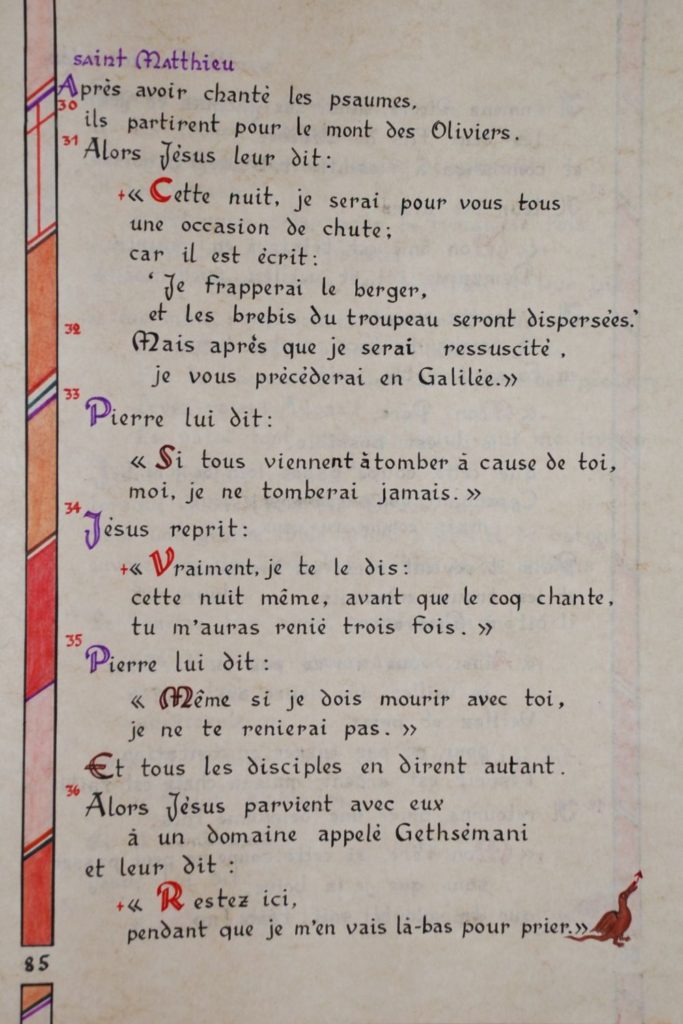 saint Matthieu
Après avoir chanté les psaumes,
30
ils partirent pour le mont des Oliviers.
31
Alors Jésus leur dit:
+« Cette nuit, je serai pour vous tous
une occasion de chute;
car il est écrit:
‘Je frapperai le berger,
et les brebis du troupeau seront dispersées.’
32
Mais après que je serai ressuscité,
je vous précéderai en Galilée.»
33
Pierre lui dit:
« Si tous viennent à tomber à cause de toi,
moi, je ne tomberai jamais. »
34
Jésus reprit:
+« Vraiment, je te le dis:
cette nuit même, avant que le coq chante,
tu m'auras renié trois fois. »
35
Pierre lui dit:
« Même si je dois mourir avec toi,
je ne te renierai pas. »
Et tous les disciples en dirent autant.
36
Alors Jésus parvient avec eux
à un domaine appelé Gethsémani
et leur dit :
+« Restez ici,
pendant que je m'en vais là-bas pour prier.»
85